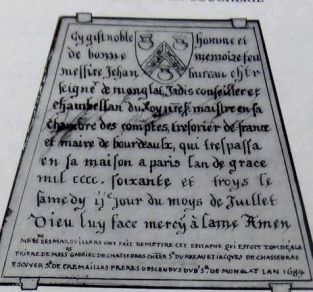 BOUCHERIE
Cy gist noble homme et
de bonne memoire feu
messire Jehan bureau chlr
seigne de monglat, Jadis conseiller et
chambellan du Roy nre sr maistre en sa
chambre des comptes, tresorier de france
et maire de bourdeaulx, qui trespassa
en sa maison a paris lan de grace
mil cccc. soixante et troys le
samedy ije jour du moys de Juillet
Dieu luy face mercy à lame Amen
MESrs LES MARGVILLERS ONT FAIT REMETTRE CET EPITAPHE QVI ESTOIT TOMBÉ A LA
PRIERE DE MRS GABRIEL DE CHASSEBRAS CHEER Sr DV BREAV ET IACQVES DE CHASSEBRAS
ESCVYER Sr DE CREMAILLES FRERES DESCENDVS DVD Sr DE MONGLAT LAN 1684